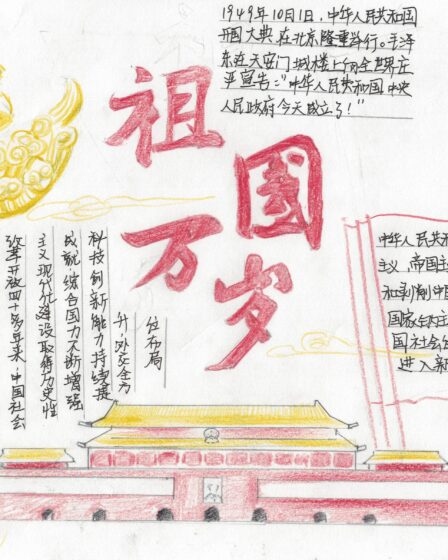 1949年10月1日,中华人民共和国
开国大典在北京隆重举行。毛泽
东在天安门城楼上向全世界庄
严宣告:“中华人民共和国中央
人民政府今天成立了!”
祖国
万岁
改革开放四十多年来,中国社会
主义现代化建设取得历史性
成就,综合国力不断增强
科技创新能力持续提
升,外交全方
位布局
中华人民共和
主义,帝国主
和剥削中国
国家
国社会
进入新